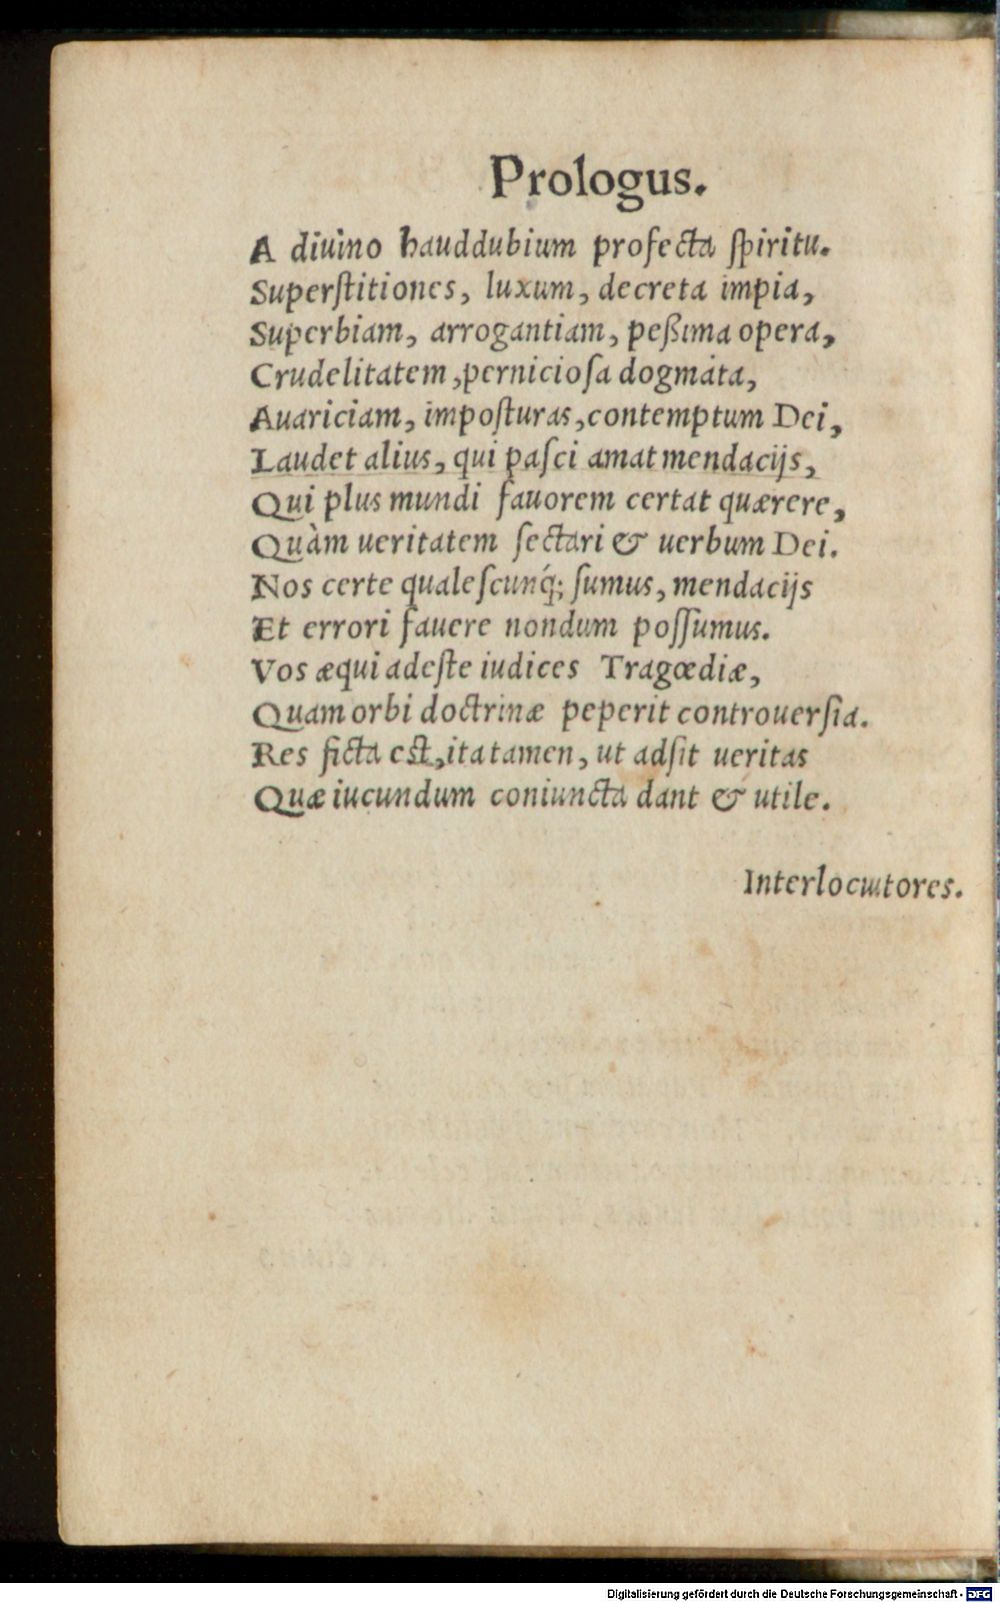 Prologus.
A diuino hauddubium profecta ſpiritu.
Superſtitiones, luxum, decreta impia,
Superbiam, arrogantiam, peßima opera,
Crudelitatem, pernicioſa dogmata,
Auariciam, impoſturas, contemptum Dei,
Laudet alius, qui paſci amat mendacijs,
Qui plus mundi fauorem certat quærere,
Quàm ueritatem ſectari & uerbum Dei.
Nos certe qualeſcunq́; ſumus, mendacijs
Et errori fauere nondum poſſumus.
Vos æqui adeſte iudices Tragœdiæ,
Quam orbi doctrinæ peperit controuerſia.
Res ficta eſt, ita tamen, ut adſit ueritas
Quæ iucundum coniuncta dant & utile.
Interlocutores.
Digitalisierung gefördert durch die Deutsche Forschungsgemeinschaft - DFG